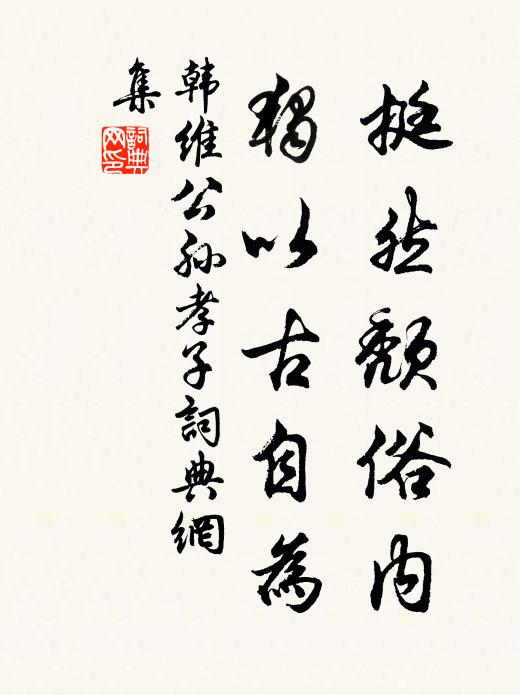 挺然颓俗内
獨以古自為
韩維公孙孝子詞典網
集
詞典網印